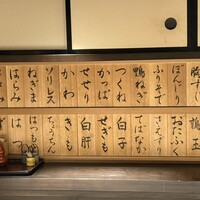 腹すじ
ぼんじり
ふりそで
鴨ねぎ
つくね
かっぱ
せせり
かわ
ソリレス
ねぎま
はらみ
鴨玉
おたふく
さえずり
てばなか
白子
せぎも
白肝
きも
ちょうちん
はつもと
はつ